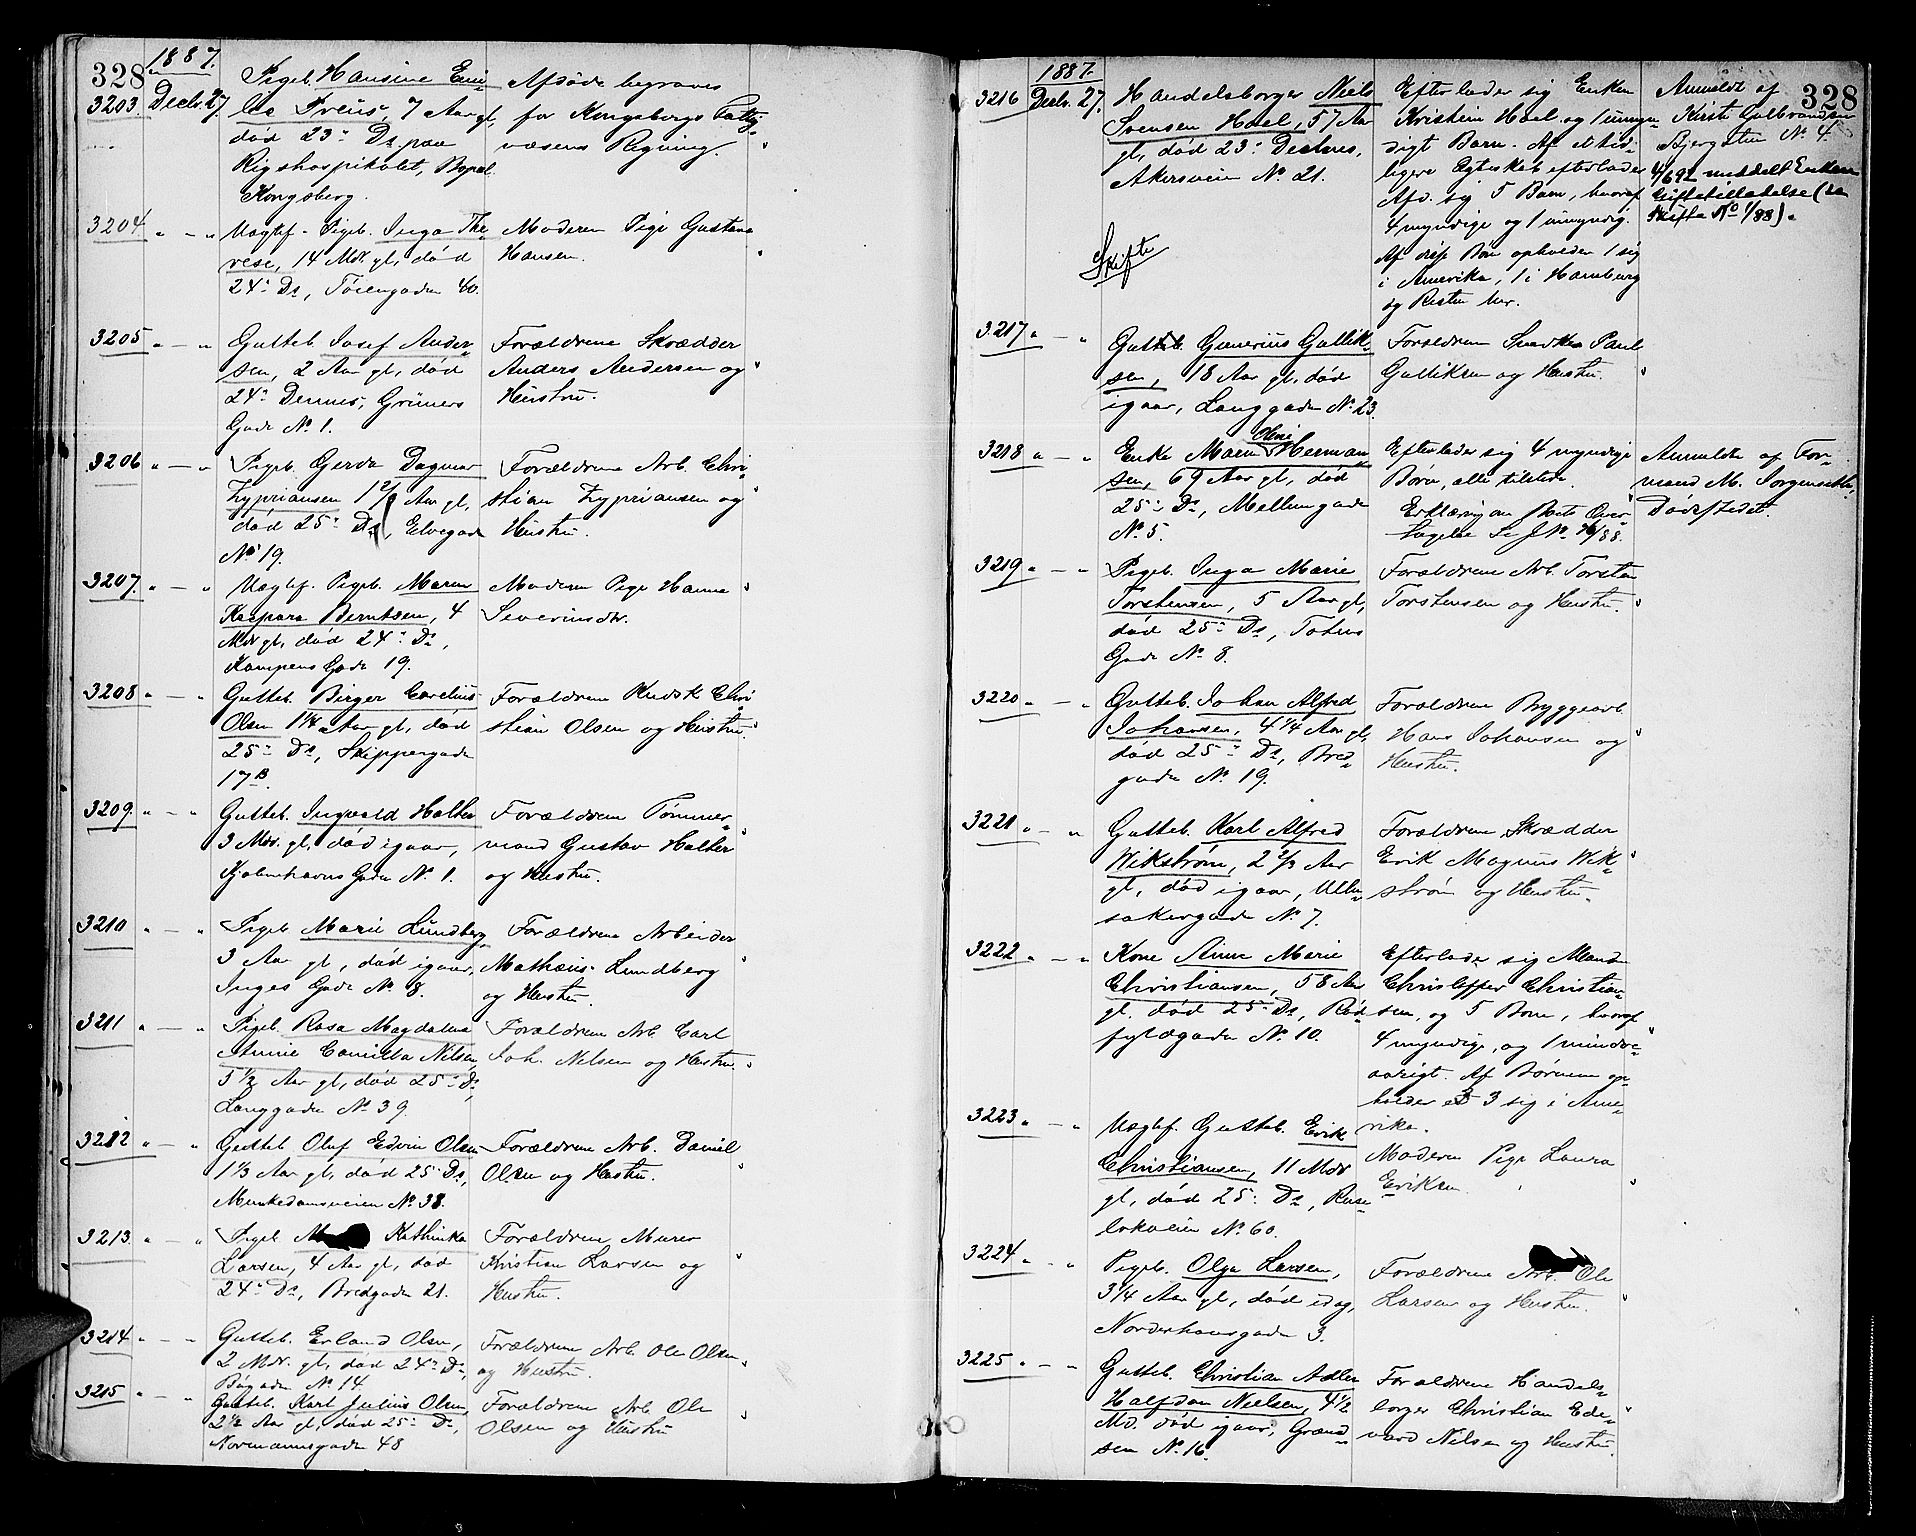 328
1887.
3203. Decbr. 27. Pigeb. Hansine Emi-
lie Treüs, 7 Aar gl,
død 23de Ds. paa
Rigshospitalet,
Kongsberg.
Afdøde begraves
for Kongsbergs Fattig-
væsens Regning.
3204 " — " Uægtef. Pigeb. Inga The-
rese, 14 Mdr gl, død
24de Ds, Tøiengaden 40.
Moderen Pige Gustava
Hansen.
3205 " — " Gutteb. Josef Ander-
sen, 2 Aar gl, død
24de Dennes, Grüners
Gade No 1.
Forældrene Skrædder
Anders Andersen og
Hustru.
3206 " — " Pigeb. Gerda Dagmar
Zypriansen 1 2/ Aar gl,
død 25de Ds, Elvegade
No 19.
Forældrene Arb. Chri-
stian Zypriansen og
Hustru.
3207. " — " Uægtef. Pigeb. Maren
Kaspara Berntsen, 4
Mdr gl, død 24de Ds,
Kampens Gade 19.
Moderen Pige Hanna
Severinsdtr.
3208 " — " Gutteb. Birger Cornelius
Olsen 1 1/4 Aar gl, død
25de Ds, Skippergade
17B.
Forældrene Kudsk Chri-
stian Olsen og Hustru.
3209. " — " Gutteb. Ingvald Halter
3 Mdr. gl, død igaar,
Kjøbenhavns Gade No 1.
Forældrene Tømmer-
mand Gustav Halter
og Hustru.
3210 " — " Pigeb. Marie Lundberg
3 Aar gl, død igaar,
Inges Gade No 8.
Forældrene Arbeider
Mathæus Lundberg
og Hustru.
3211 " — " Pigeb. Rosa Magdalena
Annie Camilla Nilsen,
5 1/2 Aar gl, død 25de Ds,
Langgaden No 39.
Forældrene Arb. Carl
Joh. Nilsen og Hustru.
3212 " — " Gutteb. Oluf Edvin Olsen
1 1/3 Aar gl, død 25 Ds,
Munkedamsveien No 38.
Forældrene Arb. Daniel
Olsen og Hustru.
3213. " — " Pigeb. Kathinka
Larsen, 4 Aar gl, død
24de Ds, Bredgaden 21.
Forældrene Murer
Kristian Larsen og
Hustru.
3214 " — " Gutteb. Erland Olsen,
2 Mdr. gl, død 24de Ds,
Bøgaden No 14.
Forældrene Arb. Ole Olsen
og Hustru.
3215 " — " Gutteb. Karl Julius Olsen,
2 1/2 Aar gl, død 25de Ds,
Normannsgaden 48
Forældrene Arb. Ole
Olsen og Hustru
328
1887.
3216 Decbr. 27. Handelsborger Niels
Svensen Hoel, 57 Aar
gl, død 23de Dennes,
Akersveien No 21.
Skifte
Efterlader sig Enken
Kristein Hoel og 1 umyn-
digt Barn. Af et tid-
ligere Ægteskab efterlader
Afd. sig 5 Børn, hvoraf
4 myndige og 1 umyndig.
Af disse Børn opholder 1 sig
i Amerika, 1 i Hamburg
og Resten her.
Anmeldt af
Kirsti Gulbrandsen
Bjergstien No 4.
4/6 92 meddelt Enken
Giftetilladelse (se
Skifte No 1/88).
3217 " — " Gutteb. Gunerius Gullik-
sen, 18 Aar gl, død
igaar, Langgaden No 23.
Forældrene Snedker Paul
Gulliksen og Hustru.
3218 " — " Enke Maren Oline Herman-
sen, 69 Aar gl, død
25de Ds, Mellemgade
No 5.
Efterlader sig 4 myndige
Børn, alle tilstede.
Erklæring om Boets Over-
tagelse Se J No /88.
Anmeldte af For-
mand M. Jørgensen,
Dødsstedet.
3219 " — " Pigeb. Inga Marie
Torstensen, 5 Aar gl,
død 25de Ds, Totens
Gade No 8.
Forældrene Arb. Torsten
Torstensen og Hustru.
3220 " — " Gutteb. Johan Alfred
Johansen, 4 1/4 Aar gl,
død 25de Ds, Bred-
gade No 19.
Forældrene Byggearb.
Hans Johansen og
Hustru.
3221 " — " Gutteb. Karl Alfred
Wikstrøm, 2 2/3 Aar
gl, død igaar, Ullen-
sakergade No 7.
Forældrene Skrædder
Erik Magnus Wik-
strøm og Hustru.
3222 " — " Kone Anne Marie
Christiansen, 58 Aar
gl. død 25de Ds, Rød-
fyldgaden No 10.
Efterlader sig Mand
Christoffer Christian-
sen, og 5 Børn, hvoraf
4 myndige, og 1 mindre-
aarigt. Af Børnene op-
holder 3 sig i Ame-
rika.
3223 " — " Uægtef. Gutteb. Erik
Christiansen, 11 Mdr
gl, død 25de Ds, Rose-
lokveien No 60.
Moderen Pige Laura
Eriksen.
3224 " — " Pigeb. Olga Larsen,
3 1/4 Aar gl, død idag,
Norderhougaden 3.
Forældrene Arb. Ole
Larsen og Hustru.
3225 " — " Gutteb. Christian Adler
Halfdan Nielsen, 4 1/2
Md. død igaar, Grønd-
sen No 16.
Forældrene Handels-
borger Christian Ed-
vard Nilsen og Hustru.